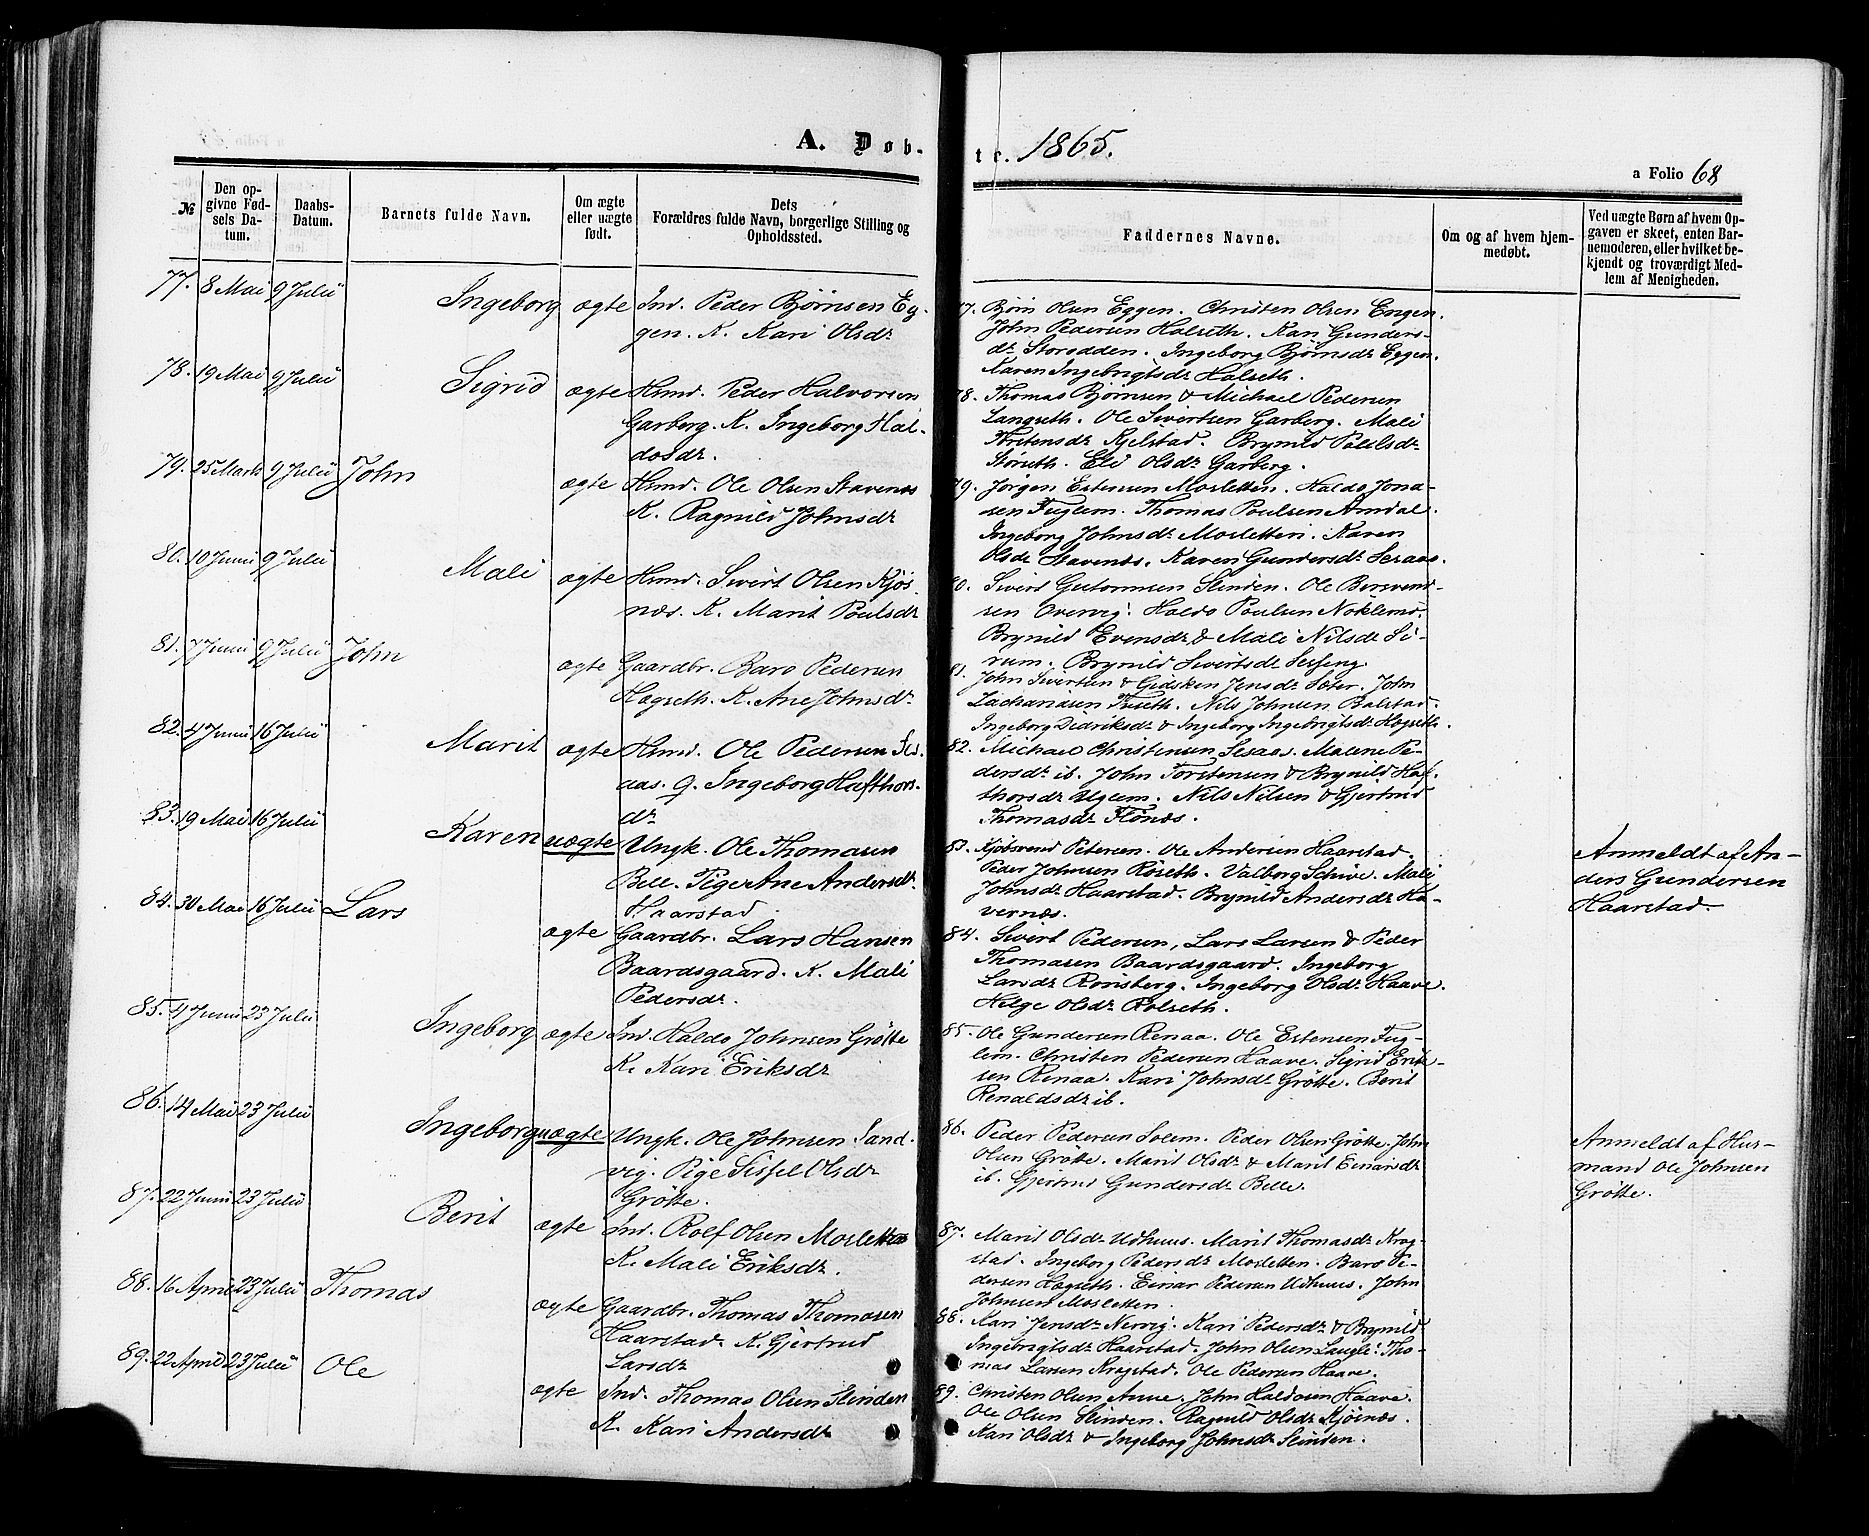 A. Døb-
te. 1865.
a Folio 68
№
Den op-
givne Fød-
sels Da-
tum.
Daabs-
Datum.
Barnets fulde Navn.
Om ægte
eller uægte
født.
Dets
Forældres fulde Navn, borgerlige Stilling og
Opholdssted.
Faddernes Navne.
Om og af hvem hjem-
medøbt.
Ved uægte Børn af hvem Op-
gaven er skeet, enten Bar-
nemoderen, eller hvilket be-
kjendt og troværdigt Med-
lem af Menigheden.
77. 8 Mai 9 Julii Ingeborg ægte Ind. Peder Bjørnsen Eg-
gen. K. Kari Olsdr
77. Bjørn Olsen Eggen. Christen Olsen Engen.
John Pedersen Halseth. Kari Gunders-
dr Storødden. Ingeborg Bjørnsdr Eggen.
Karen Ingebrigtsdr Halseth.
78. 19 Mai 9 Julii Sigrid ægte Hsmd. Peder Halvorsen
Garberg. K. Ingeborg Hal-
dosdr.
78. Thomas Bjørnsen & Michael Pedersen
Langseth. Ole Sivertsen Garberg. Mali
Torstensdr Kjelstad. Brynild Poulsdr
Støroth. Eli Olsdr Garberg.
79. 25 Marts 9 Julii John ægte Hsmd. Ole Olsen Stavenæs
K. Ragnild Johnsdr
79. Jørgen Estensen Mosletten. Haldo Jona-
sen Fuglem. Thomas Poulsen Amdal.
Ingeborg Johnsdr Mosletten. Karen
Olsdr Stavenæs. Karen Gundersdr Sesaas.
80. 10 Junii 9 Julii Mali ægte Hsmd. Sivert Olsen Kjøs-
næs. K. Marit Poulsdr
80. Sivert Guttormsen Slinden. Ole Berevend-
sen Overvig. Haldo Poulsen Noklemo.
Brynild Evensdr & Mali Nilsdr Si-
rum. Brynild Sivertsdr Sesseng
81. 7 Junii 9 Julii John ægte Gaardbr. Baro Pedersen
Hogseth. K. Ane Johnsdr
81. John Sivertsen & Gidsken Jensdr Sæter. John
Zachariasen Tuseth. Nils Johnsen Balstad.
Ingeborg Didriksdr & Ingeborg Ingebrigtsdr Hogseth.
82. 4 Junii 16 Julii Marit ægte Hsmd. Ole Pedersen Ses-
aas. G. Ingeborg Hafthors-
dr
82. Michael Christensen Sesaas. Malene Pe-
dersdr ib. John Torstensen & Brynild Haf-
thorsdr Uglem. Nils Nilsen & Gjertrud
Thomasdr Flønæs.
83. 19 Mai 16 Julii Karen uægte Ungk. Ole Thomasen
Bell. Pige Ane Andersdr
Haarstad
83. Kjøbsvend Petersen. Ole Andersen Haarstad.
Peder Johnsen Røseth. Valborg Schive. Mali
Johnsdr Haarstad. Brynild Andersdr Ha-
vernæs.
Anmeldt af An-
ders Gundersen
Haarstad.
84. 30 Mai 16 Julii Lars ægte Gaardbr. Lars Hansen
Baardsgaard. K. Mali
Pedersdr.
84. Sivert Pedersen, Lars Larsen & Peder
Thomasen Baardsgaard. Ingeborg
Larsdr Rønsberg. Ingeborg Olsdr Haave.
Helge Olsdr Rolseth.
85. 4 Junii 23 Julii Ingeborg ægte Ind. Haldo Johnsen Grøtte
K. Kari Eriksdr
85. Ole Gundersen Renaa. Ole Estensen Fug-
lem. Christen Pedersen Haave. Sigrid Erik-
sen Renaa. Kari Johnsdr Grøtte. Berit
Renaldsdr ib.
86. 14 Mai 23 Julii Ingeborg uægte Ungk. Ole Johnsen Sand-
vig. Pige Sissel Olsdr
Grøtte.
86. Peder Pedersen Solem. Peder Olsen Grøtte. John
Olsen Grøtte. Marit Olsdr & Marit Einarsdr
ib. Gjertrud Gundersdr Belle.
Anmeldt af Hus-
mand Ole Johnsen
Grøtte.
87. 22 Junii 23 Julii Berit ægte Ind. Rolf Olsen Mosletten
K. Mali Eriksdr.
87. Marit Olsdr Udhuus. Marit Thomasdr Krog-
stad. Ingeborg Pedersdr Mosletten. Baro Pe-
dersen Hogseth. Einar Pedersen Udhuus. John
Johnsen Mosletten.
88. 16 April 23 Julii Thomas ægte Gaardbr. Thomas Thomasen
Haarstad. K. Gjertrud
Larsdr
88. Kari Jensdr Nervig. Kari Pedersdr & Brynild
Ingebrigtsdr Haarstad. John Olsen Laugle. Tho-
mas Larsen Krogstad. Ole Pedersen Haave.
89. 22 April 23 Julii Ole ægte Ind. Thomas Olsen Slinden
K. Kari Andersdr
89. Christen Olsen Aune. John Haldosen Haave.
Ole Olsen Slinden. Ragnild Olsdr Kjøsnæs.
Kari Olsdr & Ingeborg Johnsdr Slinden.